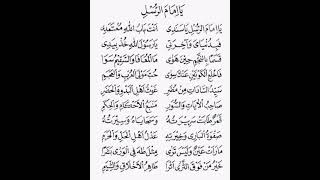 يَا إِمَامَ الرُّسْلِ
يَا إِمَامَ الرُّسْلِ يَا سَنَدِي أَنْتَ بَابُ اللهِ مُعْتَمَدِي
فَبِدُنْيَايَ وَآخِرَتِي يَا رَسُولَ اللهِ خُذْ بِيَدِي
قَسَمًا بِالنَّجْمِ حِينَ هَوَى مَا الْمُعَافَى وَالسَّقِيمُ سَوَا
فَاخْلَعِ الْكَوْنَيْنِ عَنْكَ سِوَى حُبِّ مَوْلَى الْعُرْبِ وَالْعَجَمِ
سَيِّدُ السَّادَاتِ مِنْ مُضَرِ غَوْثُ أَهْلِ الْبَدْوِ وَالْحَضَرِ
صَاحِبُ الْآيَاتِ وَالسُّوَرِ مَنْبَعُ الْأَحْكَامِ وَالْحِكَمِ
قَمَرٌ طَابَتْ سَرِيرَتُهُ وَسَجَايَاهُ وَسِيرَتُهُ
صَفْوَةُ الْبَارِي وَخِيرَتُهُ عَدْلُ أَهْلِ الْحِلِّ وَالْحَرَمِ
مَا رَأَتْ عَيْنٌ وَلَيْسَ تَرَى مِثْلَ طٰهَ فِي الْوَرَى بَشَرَا
خَيْرُ مَنْ فَوْقَ الثَّرَى أَثَرَا طَاهِرُ الْأَخْلَاقِ وَالشِّيَمِ